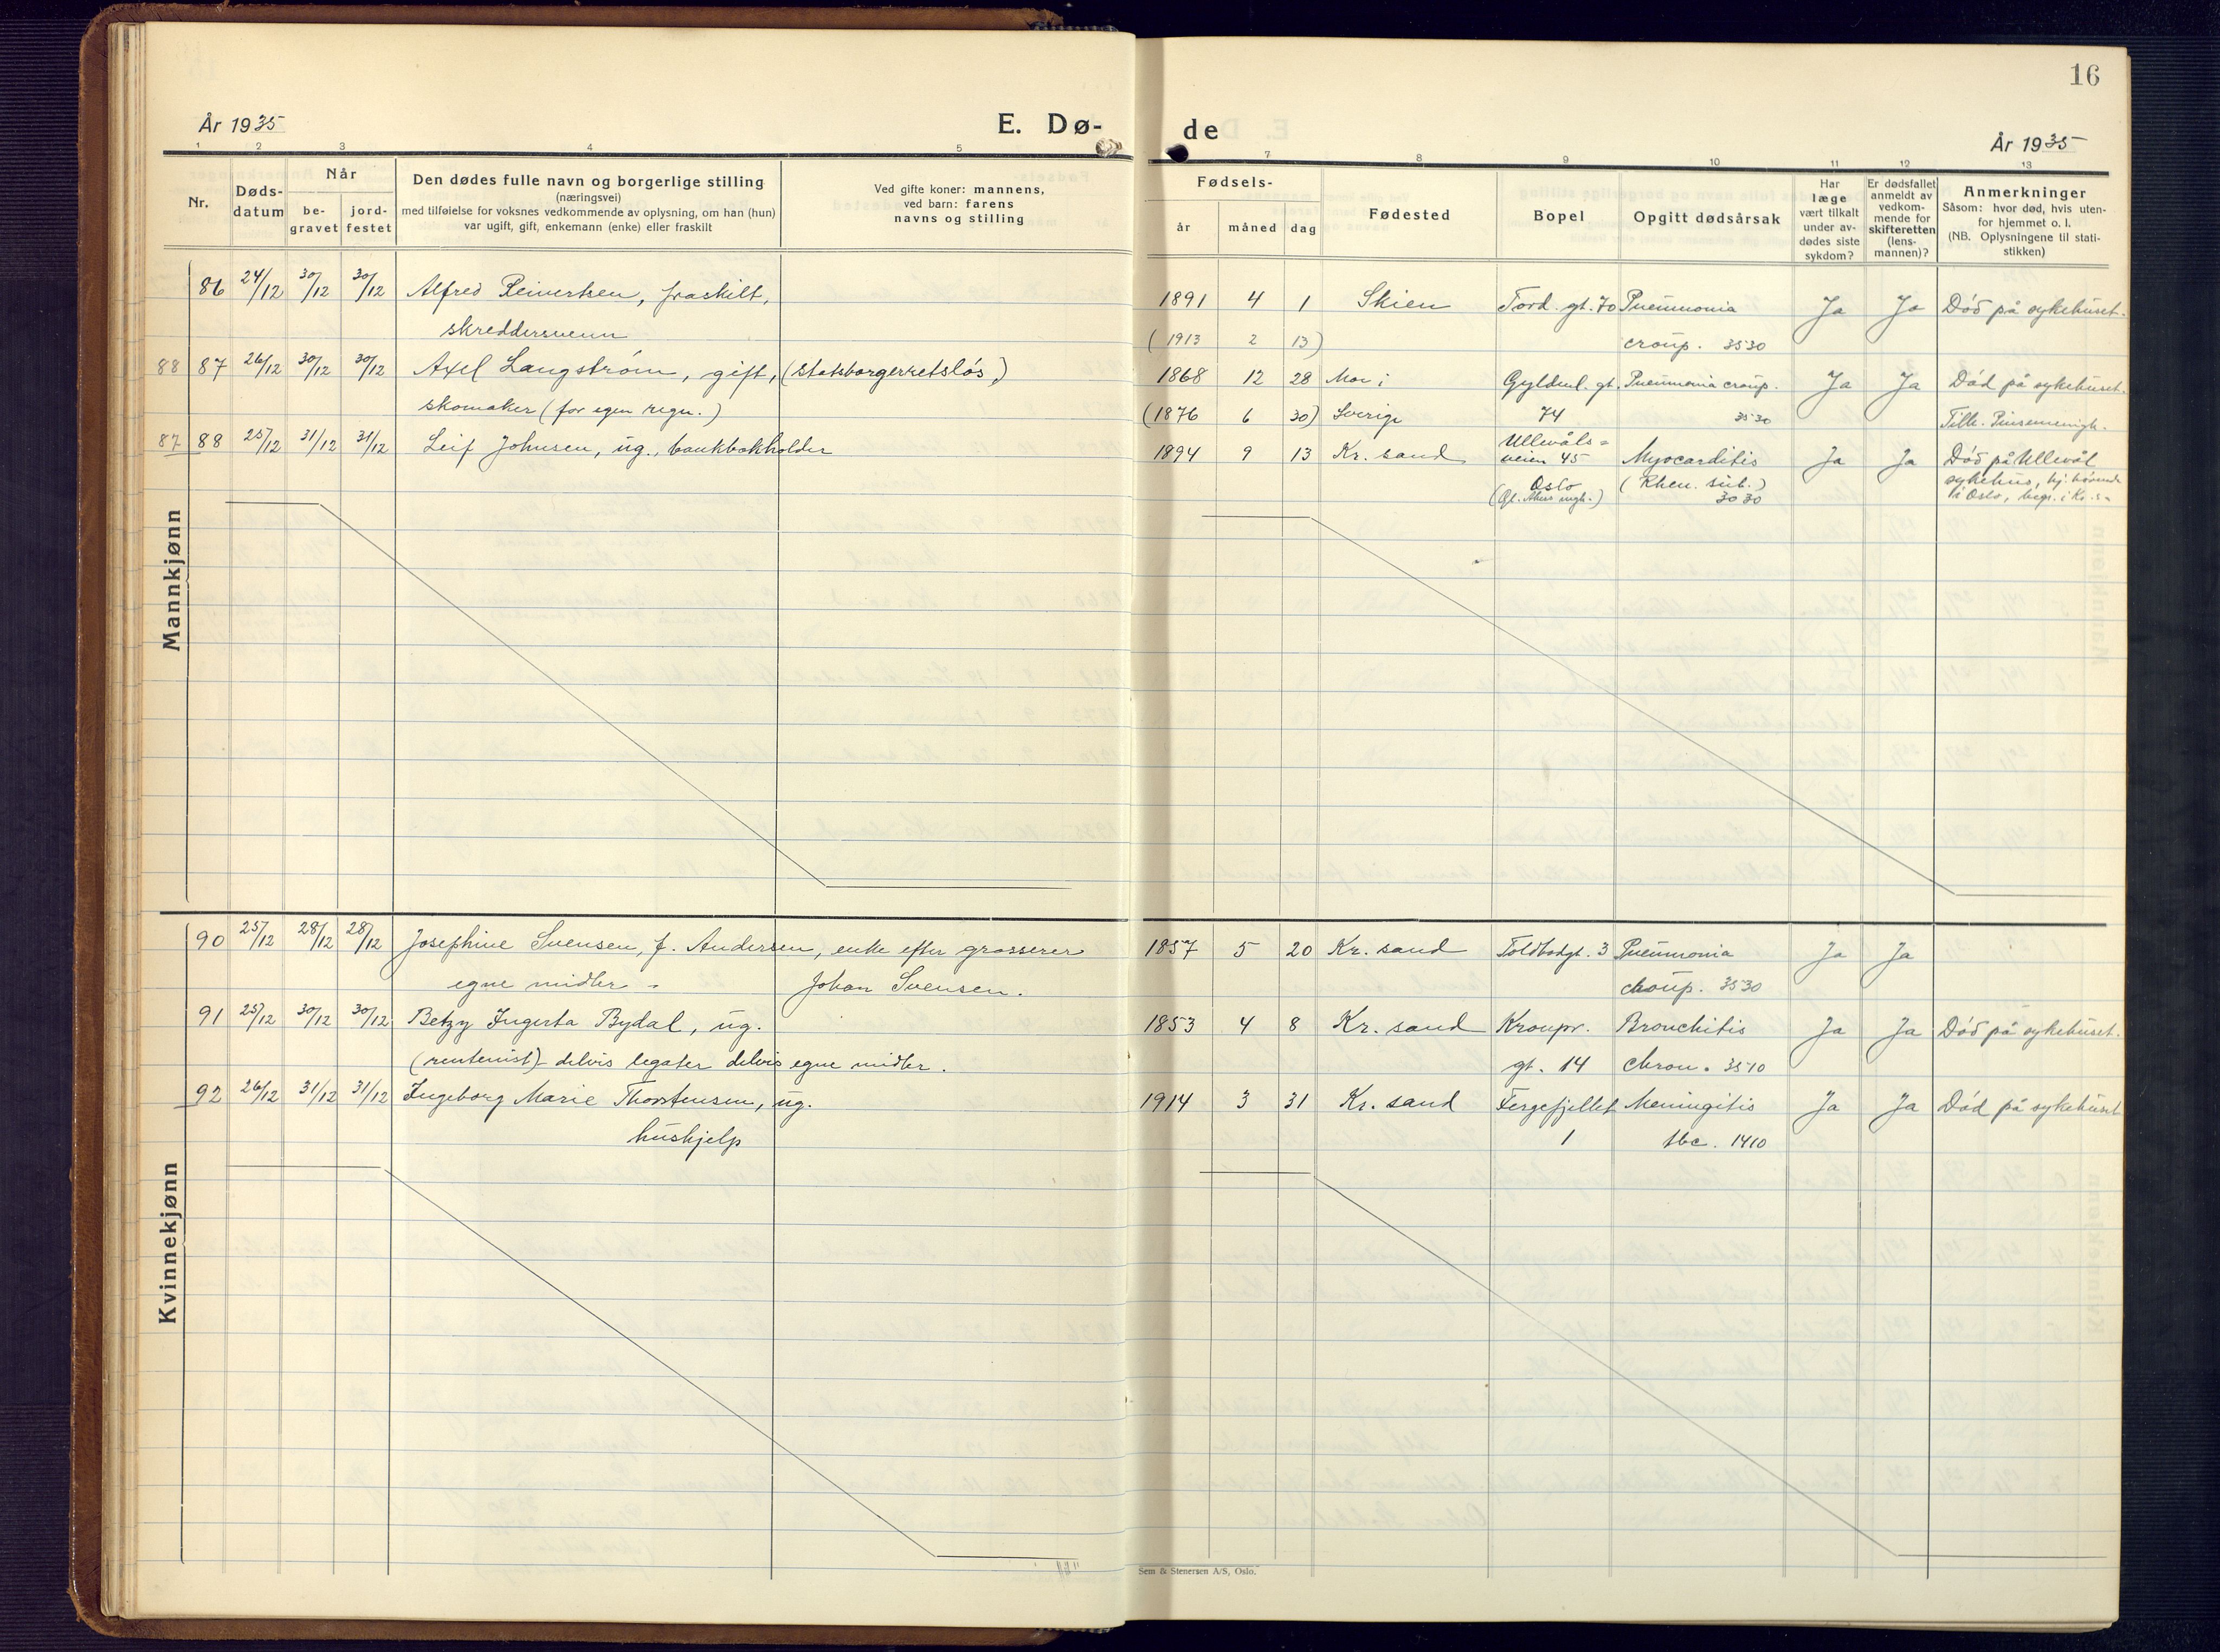 16
År 1935
E. Dø-
de
År 1935
1 2 3 4 5 7 8 9 10 11 12 13
Nr.
Døds-
datum
Når
be-
gravet
jord-
festet
Den dødes fulle navn og borgerlige stilling
(næringsvei)
med tilføielse for voksnes vedkommende av oplysning, om han (hun)
var ugift, gift, enkemann (enke) eller fraskilt
Ved gifte koner: mannens,
ved barn: farens
navns og stilling
Fødsels-
år måned dag
Fødested
Bopel
Opgitt dødsårsak
Har
læge
vært tilkalt
under av-
dødes siste
sykdom?
Er dødsfallet
anmeldt av
vedkom-
mende for
skifteretten
(lens-
mannen)?
Anmerkninger
Såsom: hvor død, hvis uten-
for hjemmet o. l.
(NB. Oplysningene til stati-
stikken)
Mannkjønn
86 24/12 30/12 30/12 Alfred Reinertsen, fraskilt, 1891 4 1 Skien Tord. gt. 70 Pneumonia Ja Ja Død på sykehuset.
skreddersvenn (1913 2 13) croup. 3530
88 87 26/12 30/12 30/12 Axel Langstrøm, gift, (statsborgerretsløs,) 1868 12 28 Mon i Gyldenl. gt. Pneumonia croup. Ja Ja Død på sykehuset.
skomaker (for egen regn.) (1876 6 30) Sverige 74 3530 Tilh. Pinsemenigh.
87 88 25/12 31/12 31/12 Leif Johnsen, ug., bankbokholder 1894 9 13 Kr. sand Ullevåls=
veien 45 Myocarditis Ja Ja Død på Ullevål
Oslo (Rheu. sub.) sykehus, hj. hörende
(Gl. Akers mgh.) 3030 i Oslo, begr. i Kr. s-
Kvinnekjønn
90 25/12 28/12 28/12 Josephine Svensen, f. Andersen, enke efter grosserer 1857 5 20 Kr. sand Toldbodgt. 3 Pneumonia Ja Ja
egne midler - Johan Svensen. croup. 3530
91 25/12 30/12 30/12 Betzy Ingerta Bydal, ug. 1853 4 8 Kr. sand Kronpr. Bronchitis Ja Ja Død på sykehuset.
(rentenist) - delvis legater delvis egne midler. gt. 14 chron. 3510
92 26/12 31/12 31/12 Ingeborg Marie Thorstensen, ug. 1914 3 31 Kr. sand Fergefjellet Meningitis Ja Ja Død på sykehuset
hushjelp 1 tbc. 1410
Sem & Stenersen A/S, Oslo.